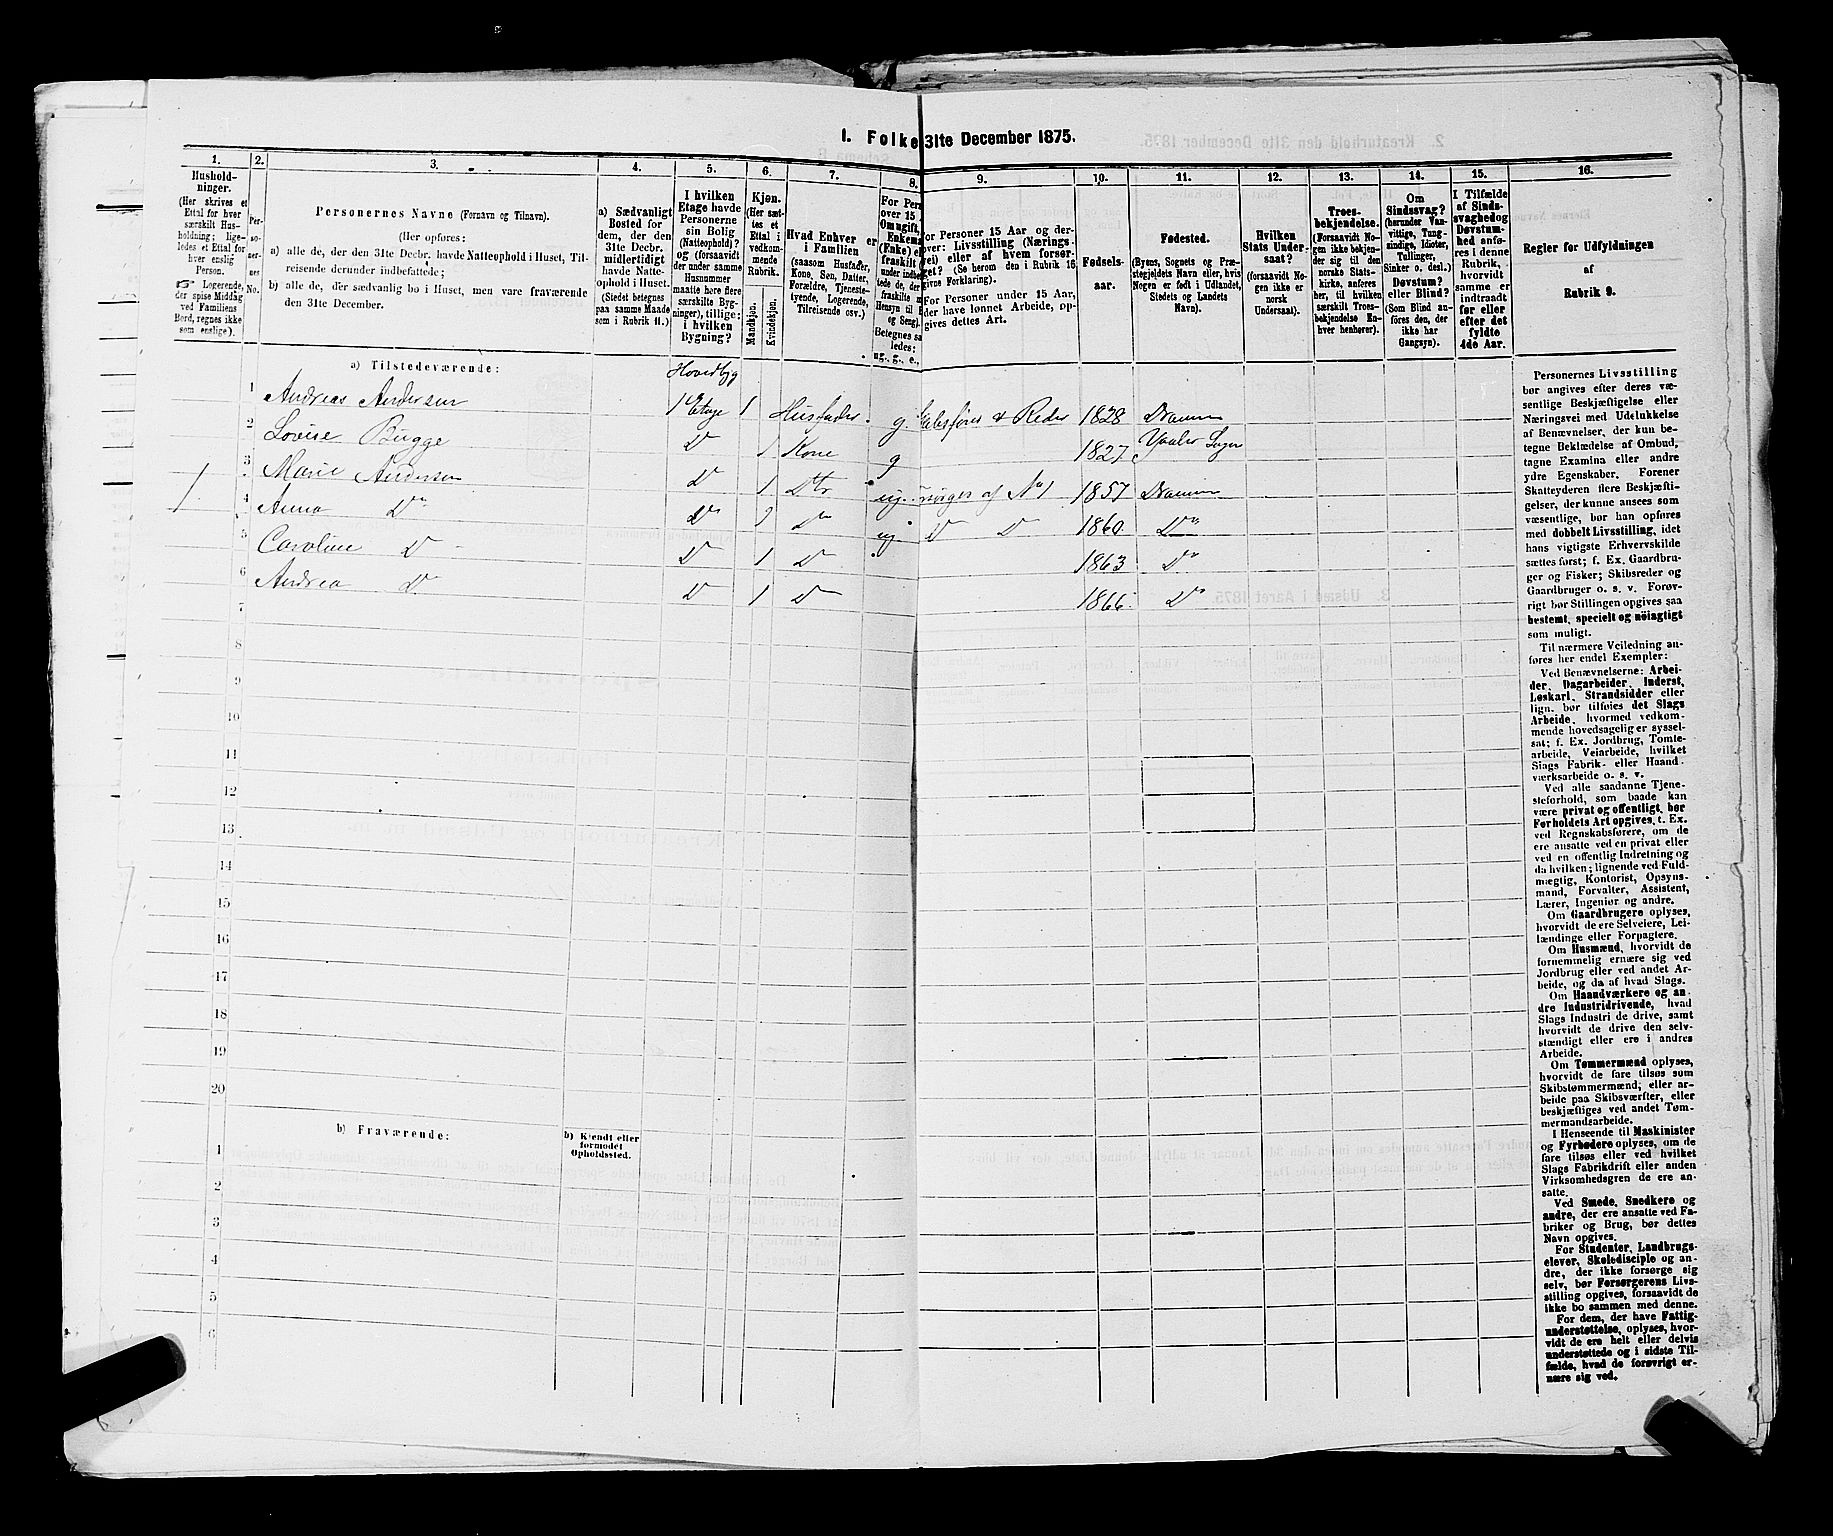 1. Folke 31te December 1875.
1. 2. 3. 4. 5. 6. 7. 8. 9. 10. 11. 12. 13. 14. 15. 16.
Hushold-
ninger.
(Her skrives et
Ettal for hver
særskilt Hus-
holdning; lige-
ledes et Ettal for
hver enslig
Person.
☞ Logerende,
der spise Middag
ved Familiens
Bord, regnes ikke
som enslige).
Per-
so-
ner-
nes
No.
Personernes Navne (Fornavn og Tilnavn).
(Her opføres:
a) alle de, der den 31te Decbr. havde Natteophold i Huset, Til-
reisende derunder indbefattede;
b) alle de, der sædvanlig bo i Huset, men vare fraværende
den 31te December.
a) Sædvanligt
Bosted for
dem, der den
31te Decbr.
midlertidigt
havde Natte-
ophold i Huset.
(Stedet betegnes
paa samme Maade
som i Rubrik 11.)
I hvilken
Etage havde
Personerne
sin Bolig
(Natteophold)?
og (forsaavidt
der under samme
Husnummer
maatte høre flere
særskilte Byg-
ninger), tillige:
i hvilken
Bygning?
Kjøn.
(Her sæt-
tes et
Ettal i
vedkom-
mende
Rubrik.
Mandkjøn.
Kvindekjøn.
Hvad Enhver er
i Familien
(saasom Husfader,
Kone, Søn, Datter,
Forældre, Tjeneste-
tyende, Logerende,
Tilreisende osv.)
For Per
over 15
Omugift,
Enkema
(Enke) el
fraskilt
Betegnes sa
ledes:
ug., g., e.,
For Personer 15 Aar og der-
over: Livsstilling (Nærings-
vei) eller af hvem forsør-
get? (Se herom den i Rubrik 16
givne Forklaring).
For Personer under 15 Aar,
der have lønnet Arbeide, op-
gives dettes Art.
Fødsels-
aar.
Fødested.
(Byens, Sognets og Præ-
stegjeldets Navn eller, hvis
Nogen er født i Udlandet,
Stedets og Landets
Navn).
Hvilken
Stats Under-
saat?
(forsaavidt No-
gen ikke er
norsk
Undersaat).
Troes-
bekjendelse.
(Forsaavidt No-
gen ikke bekjen-
der sig til den
norske Stats-
kirke, anføres
her, til hvilken
særskilt Troes-
bekjendelse En-
hver henhører).
Om
Sindssvag?
(herunder Van-
vittige, Tung-
sindige, Idioter,
Tullinger,
Sinker o. desl.)
Døvstum?
eller Blind?
(Som Blind an-
føres den, der
ikke har
Gangsyn).
I Tilfælde
af Sinds-
svaghed og
Døvstum-
hed anfø-
res i denne
Rubrik,
hvorvidt
samme er
indtraadt
før eller
efter det
fyldte
4de Aar.
Regler for Udfyldningen
af
Rubrik 9.
a) Tilstedeværende: Hovedbyg
1 Andreas Andersen 1 Etage 1 Husfader g. & Reder 1828 Drammen
2 Lovise Bugge Do 1 Kone g 1827
3 Marie Andersen Do 1 Dtr ug. af No 1 1857 Drammen
4 Anna Do Do 1 Do ug Do Do 1860 Do
5 Caroline Do Do 1 Do 1863 Do
6 Andrea Do Do 1 Do 1866 Do
7
8
9
10
11
12
13
14
15
16
17
18
19
20
b) Fraværende: b) Kjendt eller
formodet
Opholdssted.
1
2
3
4
5
6
Personernes Livsstilling
bør angives efter deres væ-
sentlige Beskjæftigelse eller
Næringsvei med Udelukkelse
af Benævnelser, der kun be-
tegne Beklædelse af Ombud,
tagne Examina eller andre
ydre Egenskaber. Forener
Skatteyderen flere Beskjæfti-
gelser, der kunne ansees som
væsentlige, bør han opføres
med dobbelt Livsstilling, idet
hans vigtigste Erhvervskilde
sættes først; f. Ex. Gaardbru-
ger og Fisker; Skibsreder og
Gaardbruger o. s. v. Forøv-
rigt bør Stillingen opgives saa
bestemt, specielt og nöiagtigt
som muligt.
Til nærmere Veiledning an-
føres her endel Exempler:
Ved Benævnelserne: Arbei-
der, Dagarbeider, Inderst,
Løskarl, Strandsidder eller
lign. bør tilføies det Slags
Arbeide, hvormed vedkom-
mende hovedsagelig er syssel-
sat; f. Ex. Jordbrug, Tomte-
arbeide, Veiarbeide, hvilket
Slags Fabrik- eller Haand-
værksarbeide o. s. v.
Ved alle saadanne Tjene-
steforhold, som baade kan
være privat og offentligt, bør
Forholdets Art opgives, t. Ex.
ved Regnskabsførere, om de
ere ansatte ved en privat eller
ved en offentlig Indretning og
da hvilken; lignende ved Fuld-
mægtig, Kontorist, Opsyns-
mand, Forvalter, Assistent,
Lærer, Ingeniør og andre.
Om Gaardbrugere oplyses,
hvorvidt de ere Selveiere, Lei-
lændinge eller Forpagtere.
Om Husmænd, hvorvidt de
fornemmelig ernære sig ved
Jordbrug eller ved andet Ar-
beide, og da af hvad Slags.
Om Haandværkere og an-
dre Industridrivende, hvad
Slags Industri de drive, samt
hvorvidt de drive den selv-
stændigt eller ere i andres
Arbeide.
Om Tømmermænd oplyses,
hvorvidt de fare tilsøs som
Skibstømmermænd; eller ar-
beide paa Skibsværfter, eller
beskjæftiges ved andet Tøm-
mermandsarbeide.
I Henseende til Maskinister
og Fyrbødere oplyses, om de
fare tilsøs eller ved hvilket
Slags Fabrikdrift eller anden
Virksomhedsgren de ere an-
satte.
Ved Smede, Snedkere og
andre, der ere ansatte ved Fa-
briker og Brug, bør dettes
Navn opgives.
For Studenter, Landbrugs-
elever, Skoledisciple og an-
dre, der ikke forsørge sig
selv, bør Forsørgerens Livs-
stilling opgives, forsaavidt de
ikke bo sammen med denne.
For dem, der have Fattig-
understøttelse, oplyses, hvor-
vidt de ere helt eller delvis
understøttede og i sidste Til-
fælde, hvad de forøvrigt er-
nære sig ved.